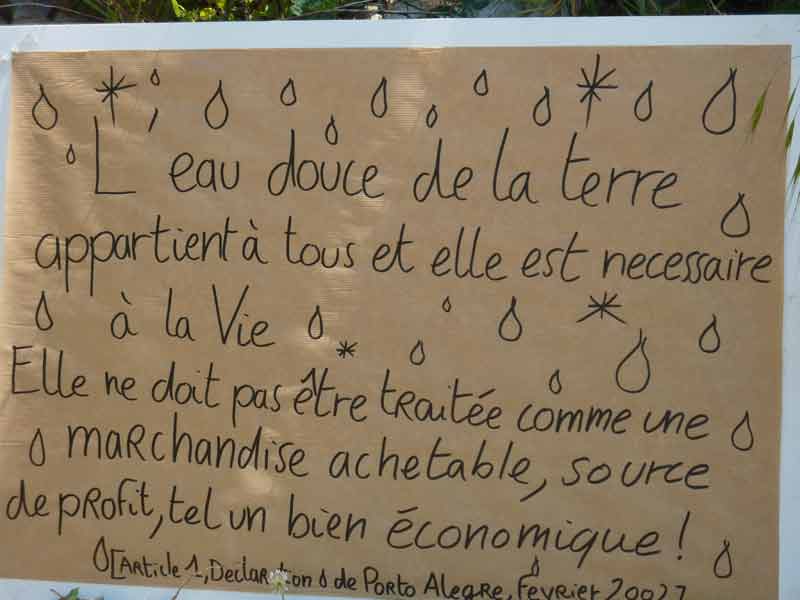 L eau douce de la terre
appartient à tous et elle est necessaire
à la Vie
Elle ne doit pas être traitée comme une
marchandise achetable, source
de profit, tel un bien économique !
[Article 1, Declaration de Porto Alegre, Février 2002]